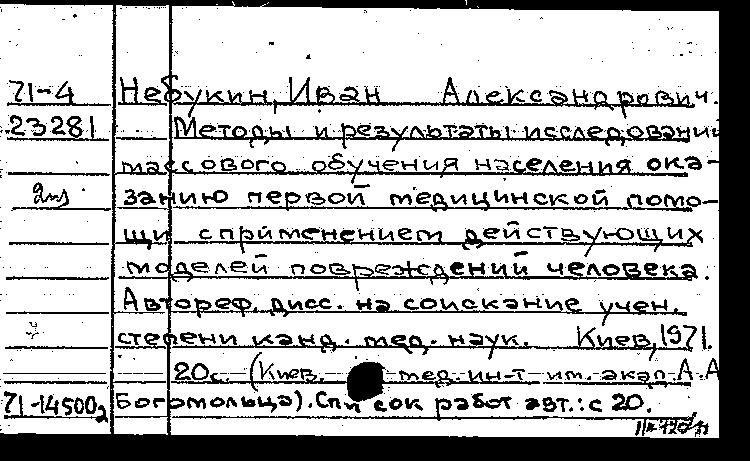 71-4 Небукин, Иван Александрович.
23281 Методы и результаты исследований
массового обучения населения ока-
2 экз занию первой медицинской помо-
щи с применением действующих
моделей повреждений человека.
Автореф. дисс. на соискание учен.
степени канд. мед. наук. Киев, 1971.
20с. (Киев. мед. ин-т им. акад А.А
71-14500₂ Богомольца). Список работ авт.: с 20.